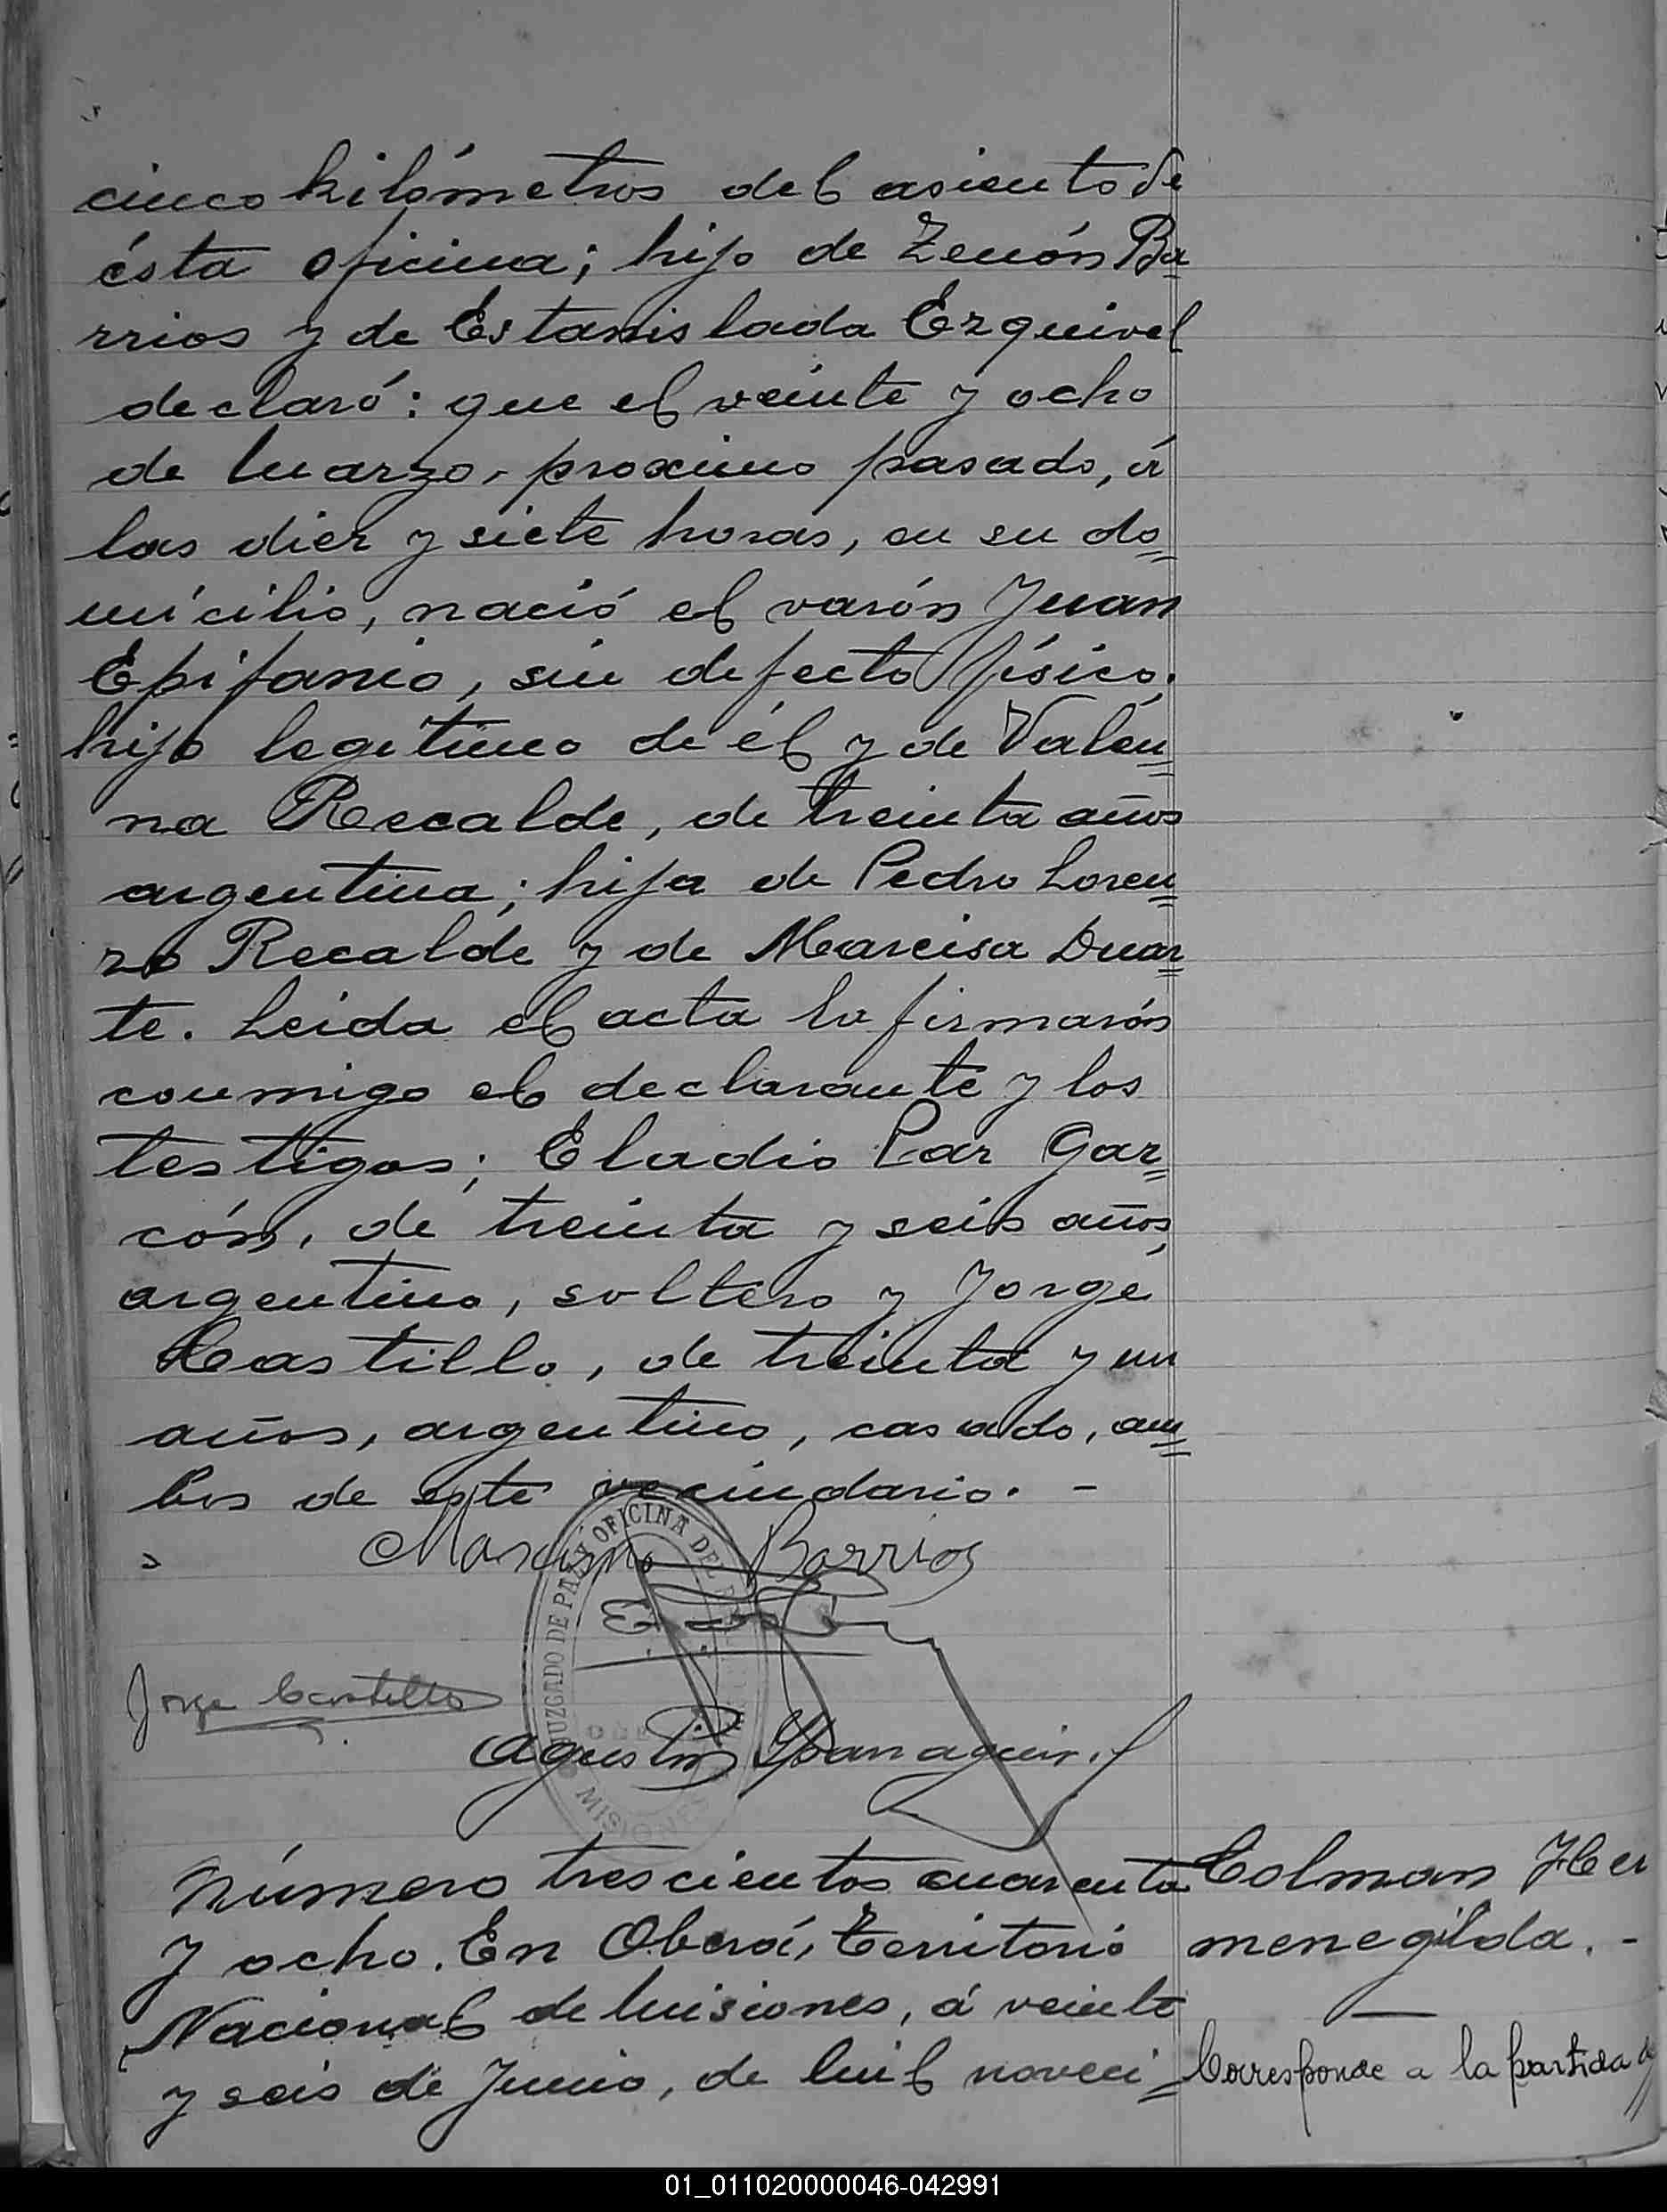 cinco kilómetros del asiento de
ésta oficina; hijo de Zenón Ba=
rrios y de Estanislada Ezquivel
declaró: que el veinte y ocho
de Marzo, proximo pasado, á
las diez y siete horas, en su do=
micilio, nació el varón Juan
Epifanio, sin defecto físico;
hijo legitimo de él y de Valén=
na Recalde, de treinta años
argentina; hija de Pedro Loren=
zo Recalde y de Narcisa Duar=
te. Leida el acta la firmarón
conmigo el declarante y los
testigos; Eladio Paz Gar=
cón, de treinta y seis años,
argentino, soltero y Jorge
Castillo, de treinta y un
años, argentino, casado, am=
bos de este vecindario. -
Barrios
JUZGADO DE PAZ Y OFICINA DEL
MISIONES
Jorge Castillo
Agustin
Número trescientos cuarenta
y ocho. En Oberá, Territorio
Nacional de Misiones, á veinte
y seis de Junio, de mil noveci=
Colman Her
menegilda. -
Corresponde a la partida de
01_011020000046-042991